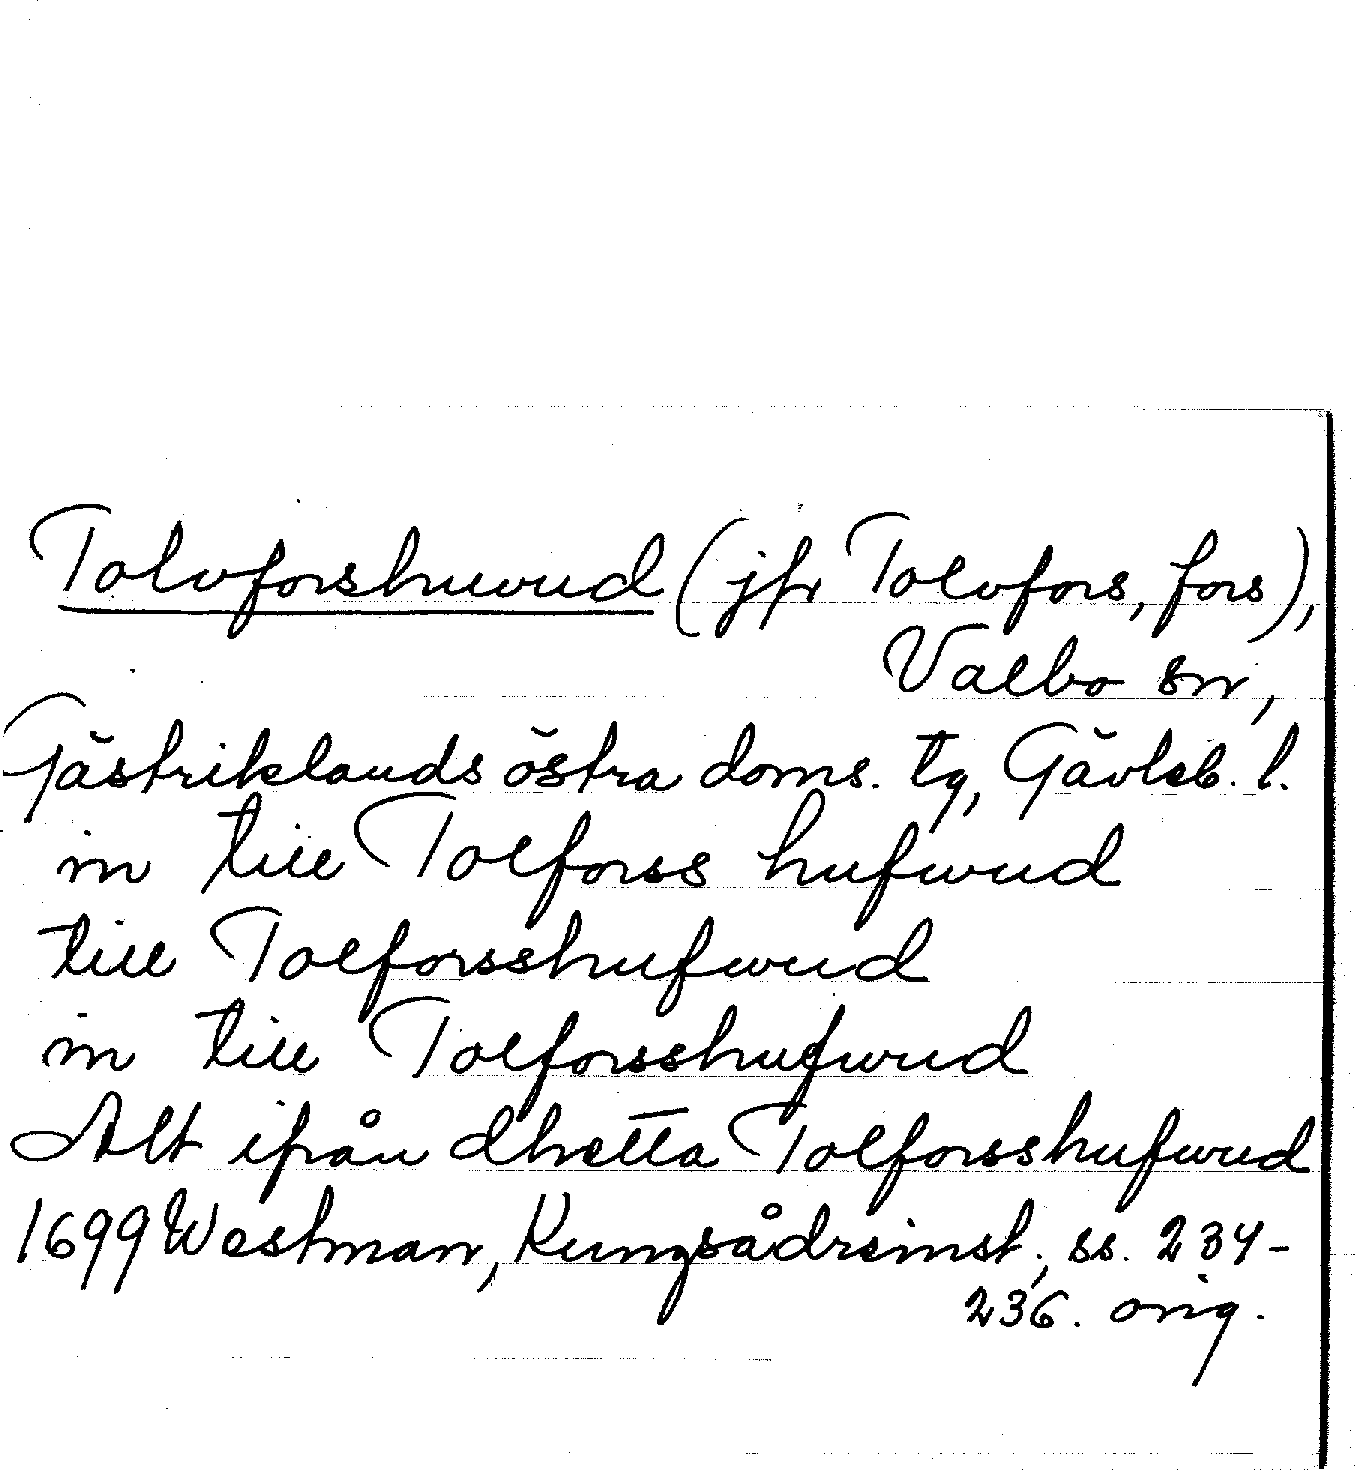 Tolvforshuvud (jfr Tolvfors, fors),
Valbo sn,
Gästriklands östra doms. tg, Gävleb. l.
in till Tolforss hufwud
till Tolforsshufwud
in till Tolforsshufwud
Alt ifrån dhetta Tolforsshufwud
1699 Westman, Kungsådreinst., ss. 234-
236. orig.